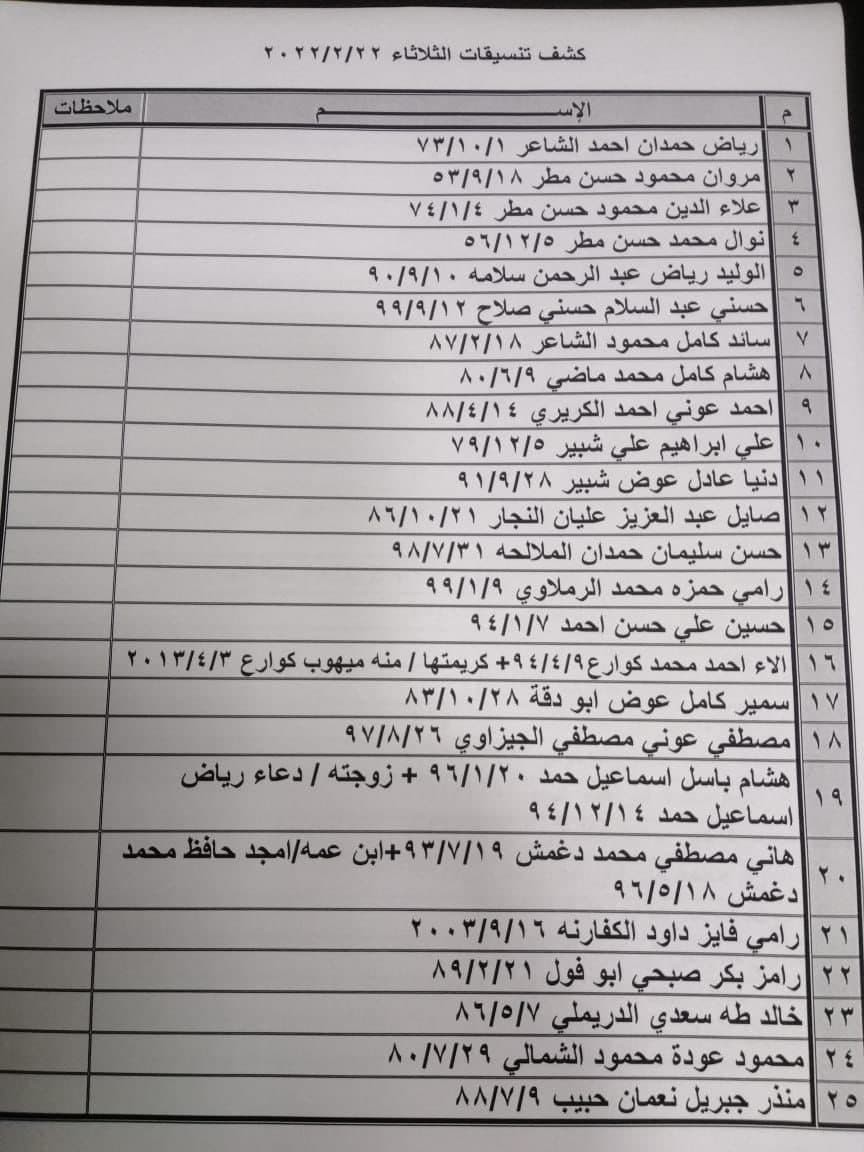 كشف تنسيقات الثلاثاء ٢٠٢٢/٢/٢٢
م الإســـــــــــــــــــــم ملاحظات
١ رياض حمدان احمد الشاعر ٧٣/١٠/١
٢ مروان محمود حسن مطر ٥٣/٩/١٨
٣ علاء الدين محمود حسن مطر ٧٤/١/٤
٤ نوال محمد حسن مطر ٥٦/١٢/٥
٥ الوليد رياض عبد الرحمن سلامه ٩٠/٩/١٠
٦ حسني عبد السلام حسني صلاح ٩٩/٩/١٢
٧ سائد كامل محمود الشاعر ٨٧/٢/١٨
٨ هشام كامل محمد ماضي ٨٠/٦/٩
٩ احمد عوني احمد الكريري ٨٨/٤/١٤
١٠ علي ابراهيم علي شبير ٧٩/١٢/٥
١١ دنيا عادل عوض شبير ٩١/٩/٢٨
١٢ صايل عبد العزيز عليان النجار ٨٦/١٠/٢١
١٣ حسن سليمان حمدان الملالحه ٩٨/٧/٣١
١٤ رامي حمزه محمد الرملاوي ٩٩/١/٩
١٥ حسين علي حسن احمد ٩٤/١/٧
١٦ الاء احمد محمد كوارع٩٤/٤/٩+ كريمتها / منه ميهوب كوارع ٢٠١٣/٤/٣
١٧ سمير كامل عوض ابو دقة ٨٣/١٠/٢٨
١٨ مصطفي عوني مصطفي الجيزاوي ٩٧/٨/٢٦
١٩ هشام باسل اسماعيل حمد ٩٦/١/٢٠ + زوجته / دعاء رياض
اسماعيل حمد ٩٤/١٢/١٤
٢٠ هاني مصطفي محمد دغمش ٩٣/٧/١٩+ابن عمه/امجد حافظ محمد
دغمش ٩٦/٥/١٨
٢١ رامي فايز داود الكفارنه ٢٠٠٣/٩/١٦
٢٢ رامز بكر صبحي ابو فول ٨٩/٢/٢١
٢٣ خالد طه سعدي الدريملي ٨٦/٥/٧
٢٤ محمود عودة محمود الشمالي ٨٠/٧/٢٩
٢٥ منذر جبريل نعمان حبيب ٨٨/٧/٩